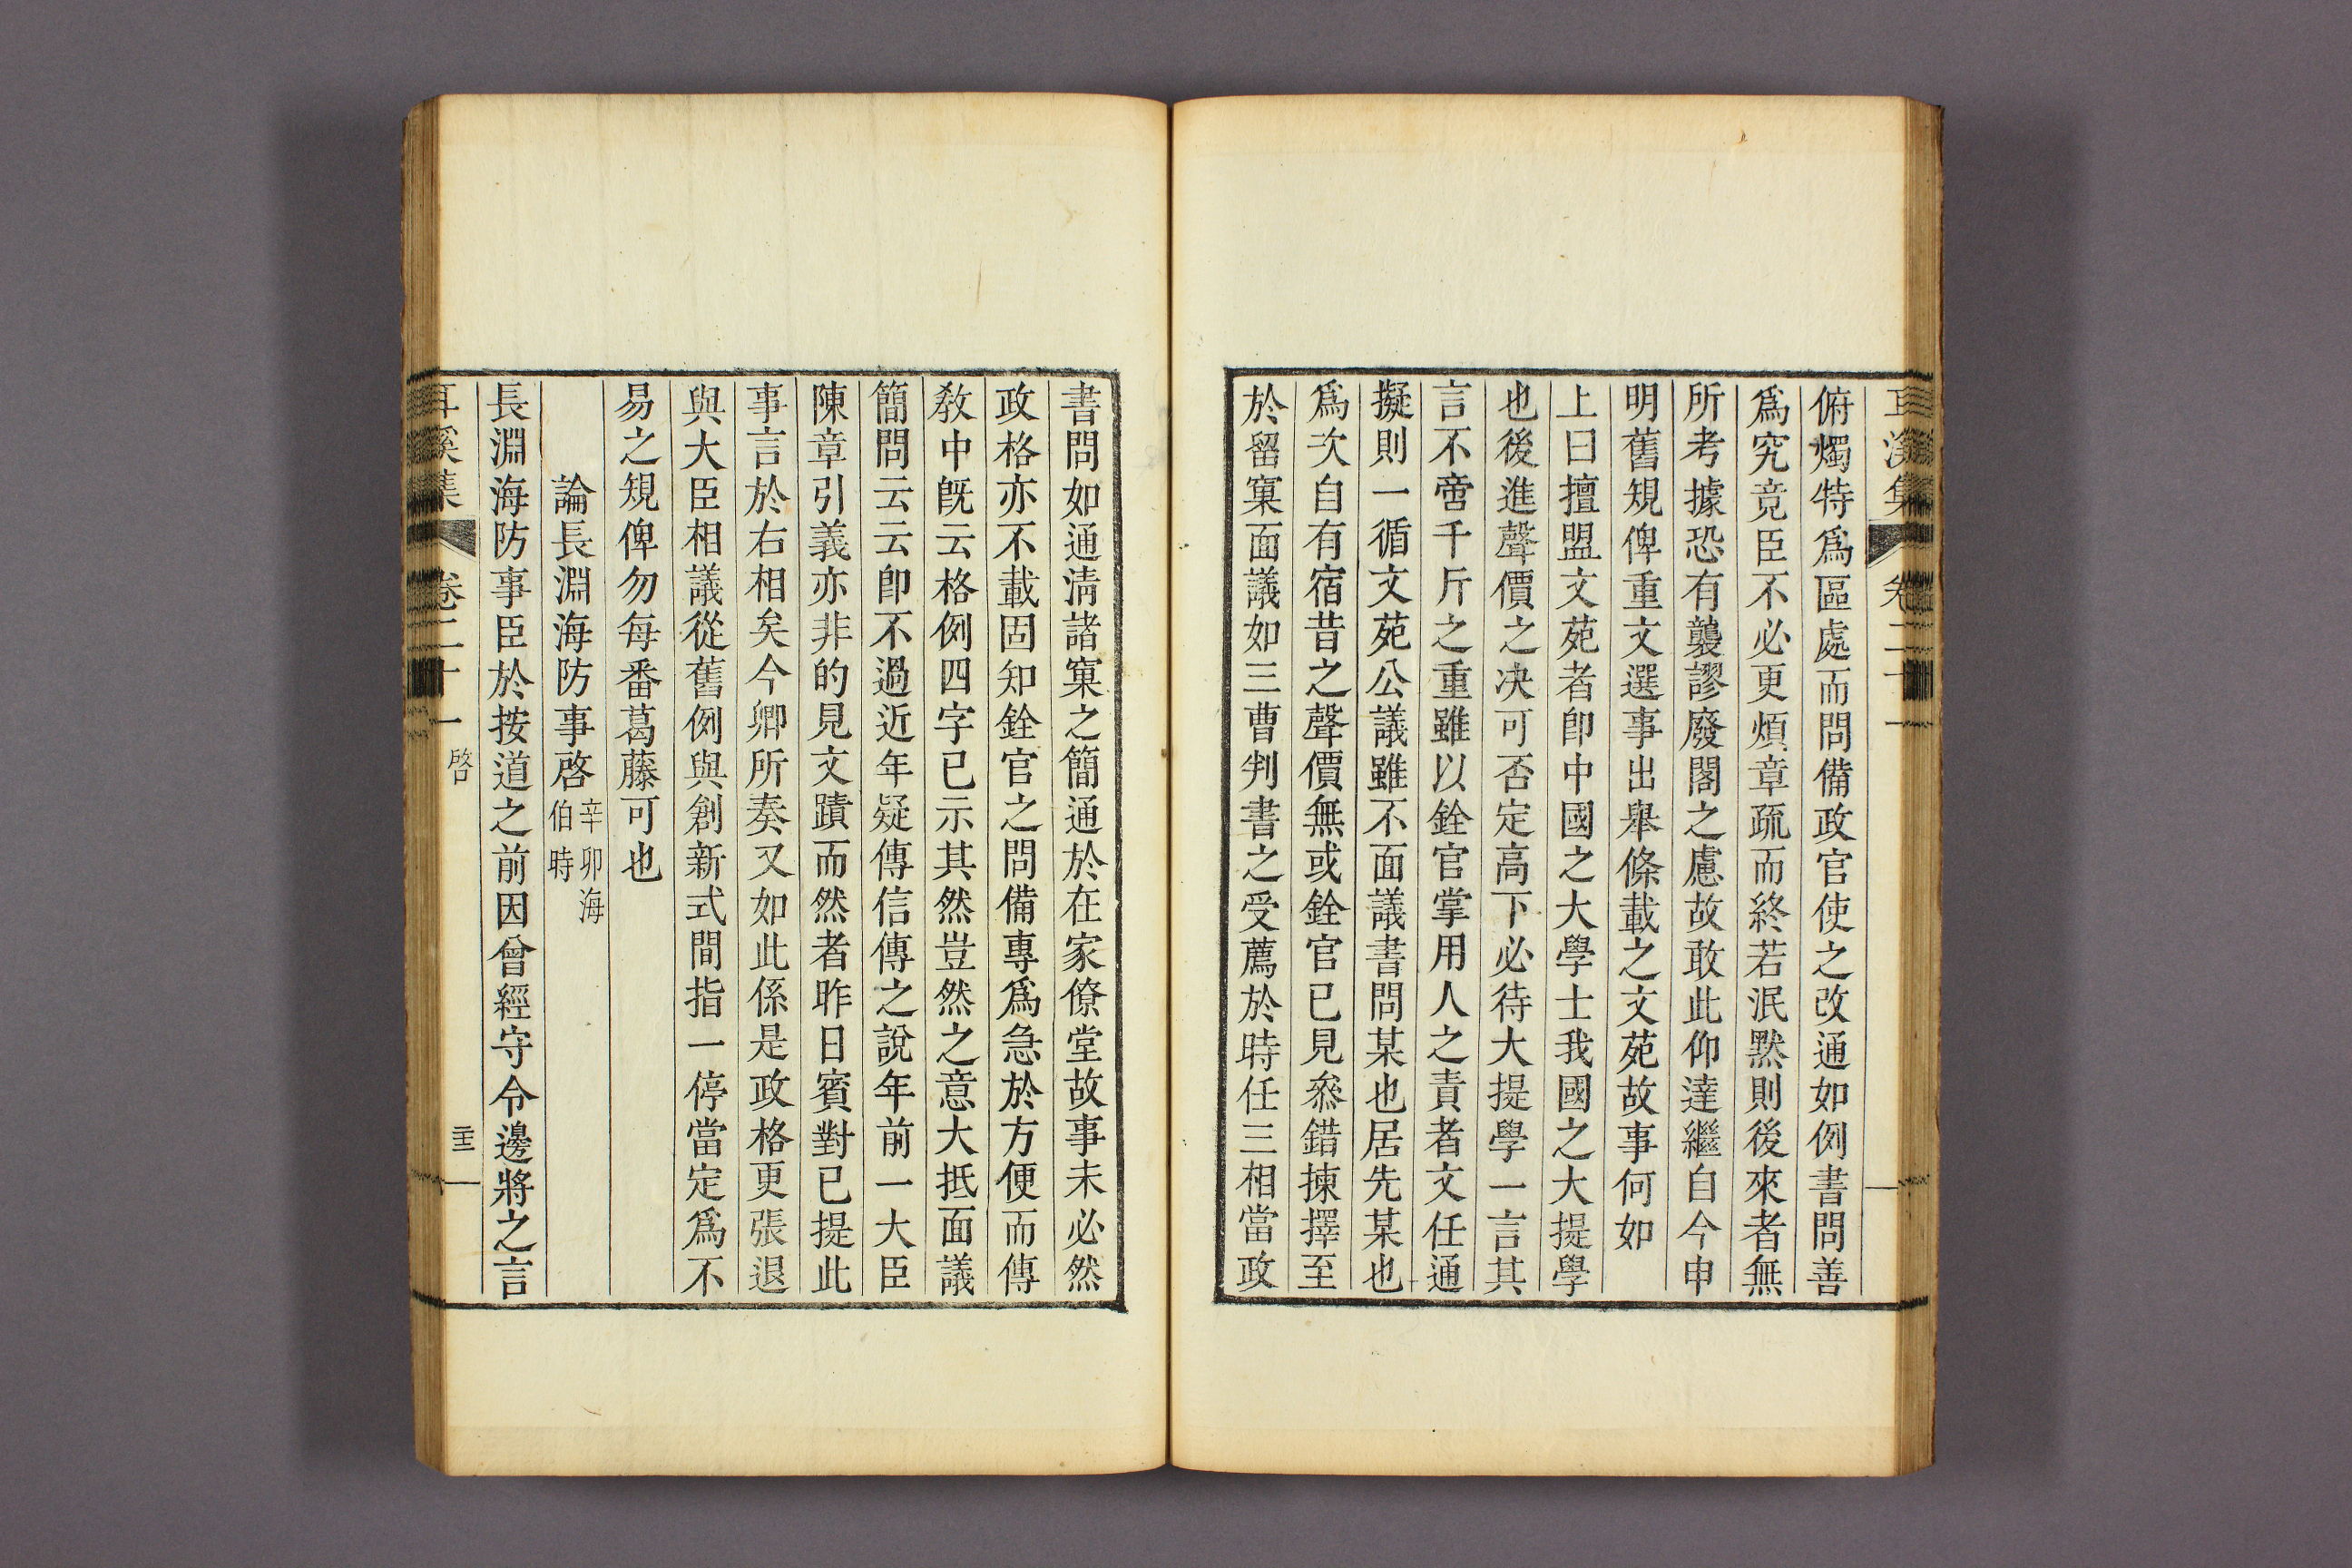 耳溪集 卷二十一
俯燭特爲區處而問備政官使之改通如例書問善
爲究竟臣不必更煩章疏而終若泯默則後來者無
所考據恐有襲謬廢閣之慮故敢此仰達繼自今申
明舊規俾重文選事出舉條載之文苑故事何如
上曰擅盟文苑者卽中國之大學士我國之大提學
也後進聲價之决可否定高下必待大提學一言其
言不啻千斤之重雖以銓官掌用人之責者文任通
擬則一循文苑公議雖不面議書問某也居先某也
爲次自有宿昔之聲價無或銓官已見叅錯揀擇至
於留窠面議如三曹判書之受薦於時任三相當政
書問如通淸諸窠之簡通於在家僚堂故事未必然
政格亦不載固知銓官之問備專爲急於方便而傳
敎中旣云格例四字已示其然豈然之意大抵面議
簡問云云卽不過近年疑傳信傳之說年前一大臣
陳章引義亦非的見文蹟而然者昨日賓對已提此
事言於右相矣今卿所奏又如此係是政格更張退
與大臣相議從舊例與創新式間指一停當定爲不
易之規俾勿每番葛藤可也
論長淵海防事啓 辛卯海伯時
長淵海防事臣於按道之前因曾經守令邊將之言
耳溪集 卷二十一 啓